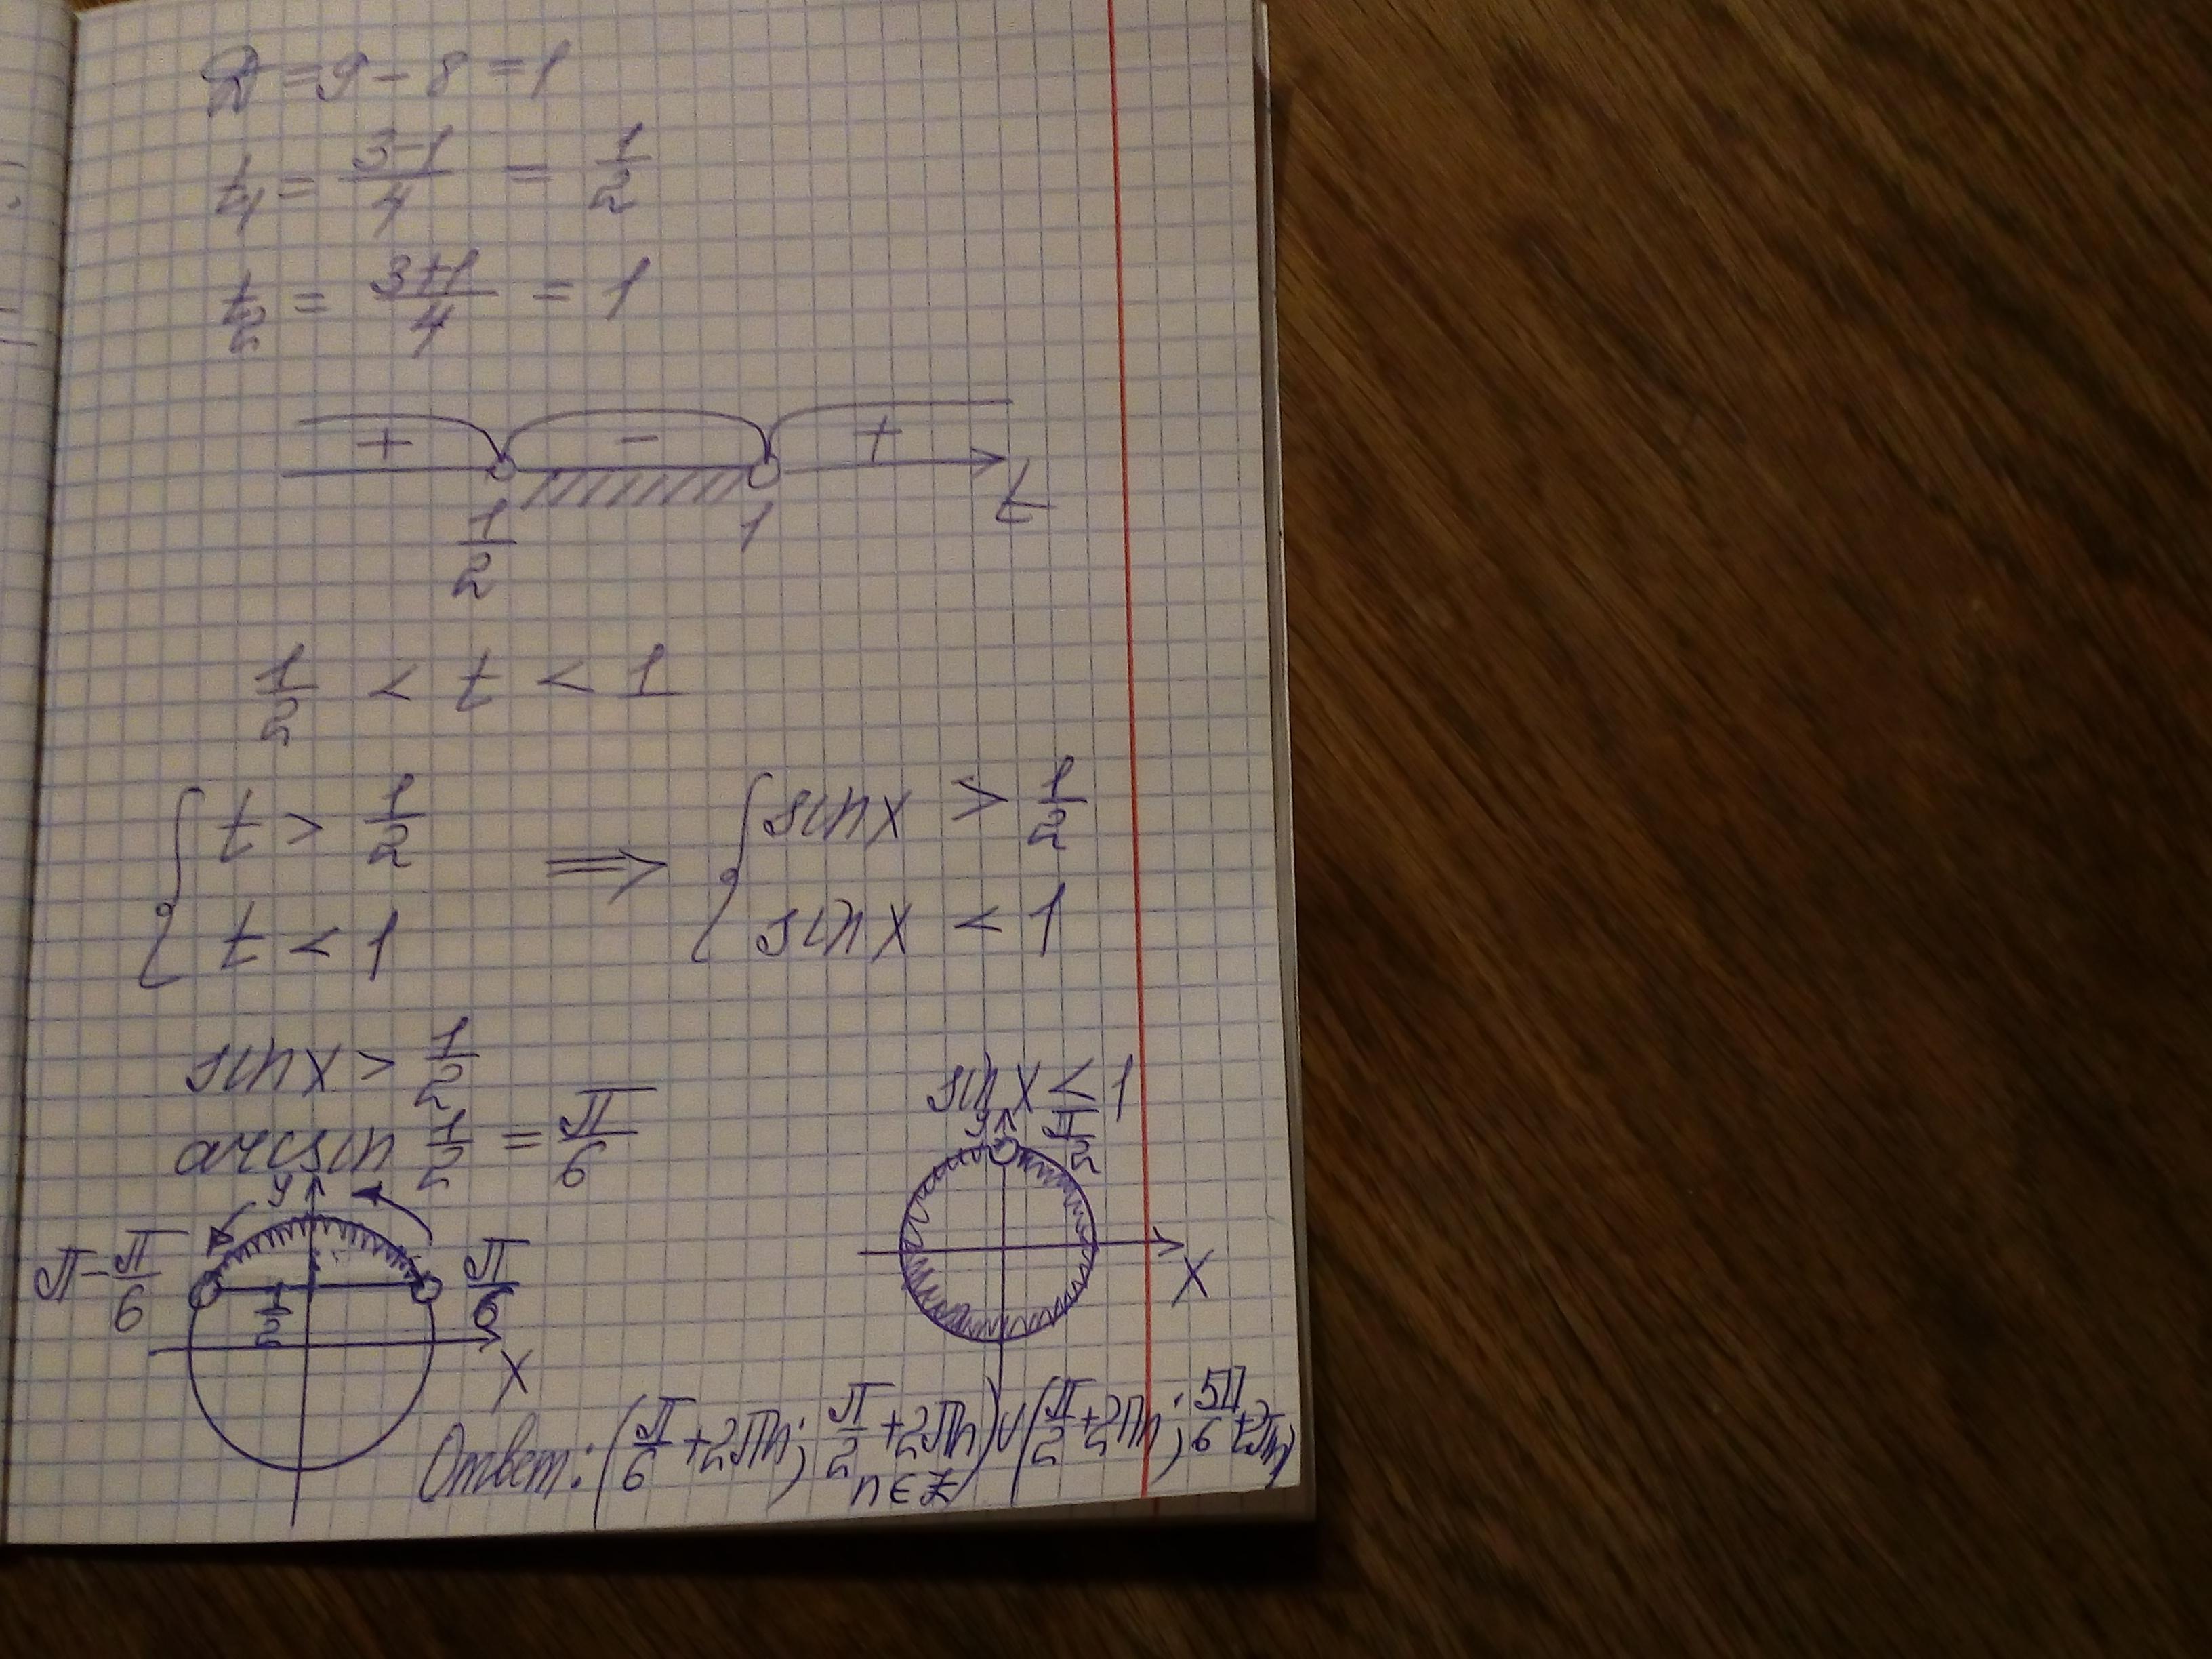 D = 9 - 8 = 1
t₁ = (3-1)/4 = 1/2
t₂ = (3+1)/4 = 1
+ - +
1/2 1 t
1/2 < t < 1
{ t > 1/2 ⟹ { sin x > 1/2
t < 1 sin x < 1
sin x > 1/2 sin x < 1
arcsin 1/2 = π/6 y π/2
y
π - π/6 1/2 π/6 x
x
Ответ: (π/6 + 2πn; π/2 + 2πn) ∪ (π/2 + 2πn; 5π/6 + 2πn)
n ∈ Z